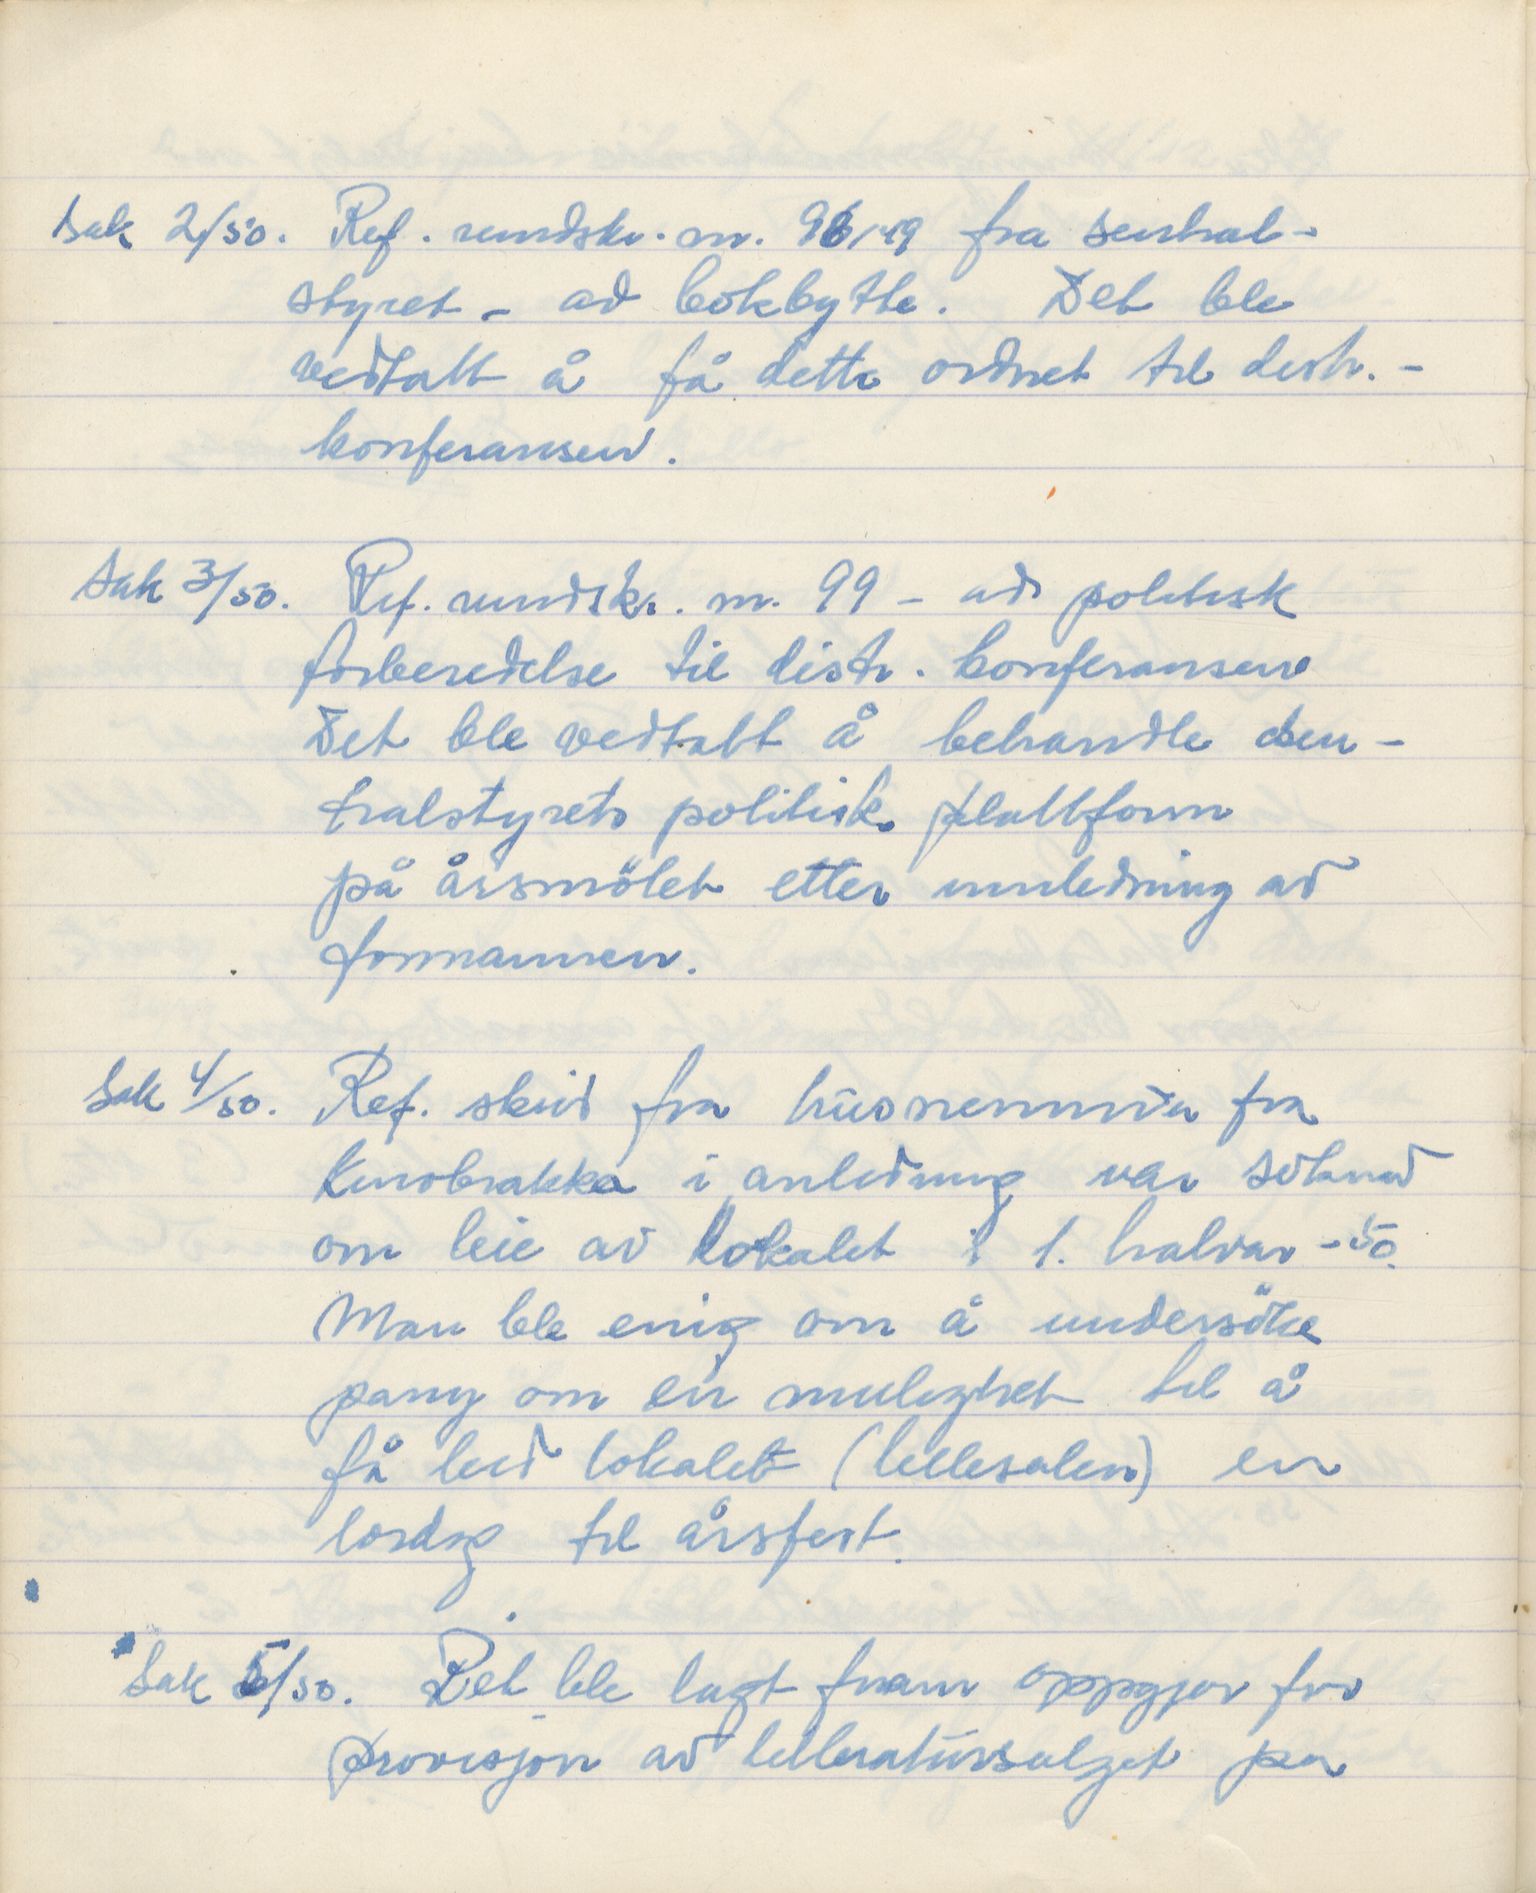 Sak 2/50. Ref. rundskr. nr. 98/49 fra sentral-
styret - ad bokbytte. Det ble
vedtatt å få dette ordnet til distr.-
konferansen.
Sak 3/50. Ref. rundskr. nr. 99 - ad politisk
forberedelse til distr. konferansen
Det ble vedtatt å behandle sen-
tralstyrets politisk plattform
på årsmötet etter innledning av
formannen.
Sak 4/50. Ref. skriv fra husnemnda fra
Kinobrakka i anledning vår söknad
om leie av lokalet i 1. halvår -50.
Man ble enig om å undersöke
om en mulighet til å
få leid lokalet (lillesalen) en
lördag til årsfest.
Sak 5/50. Det ble lagt fram oppgjör for
provisjon av litteratursalget på